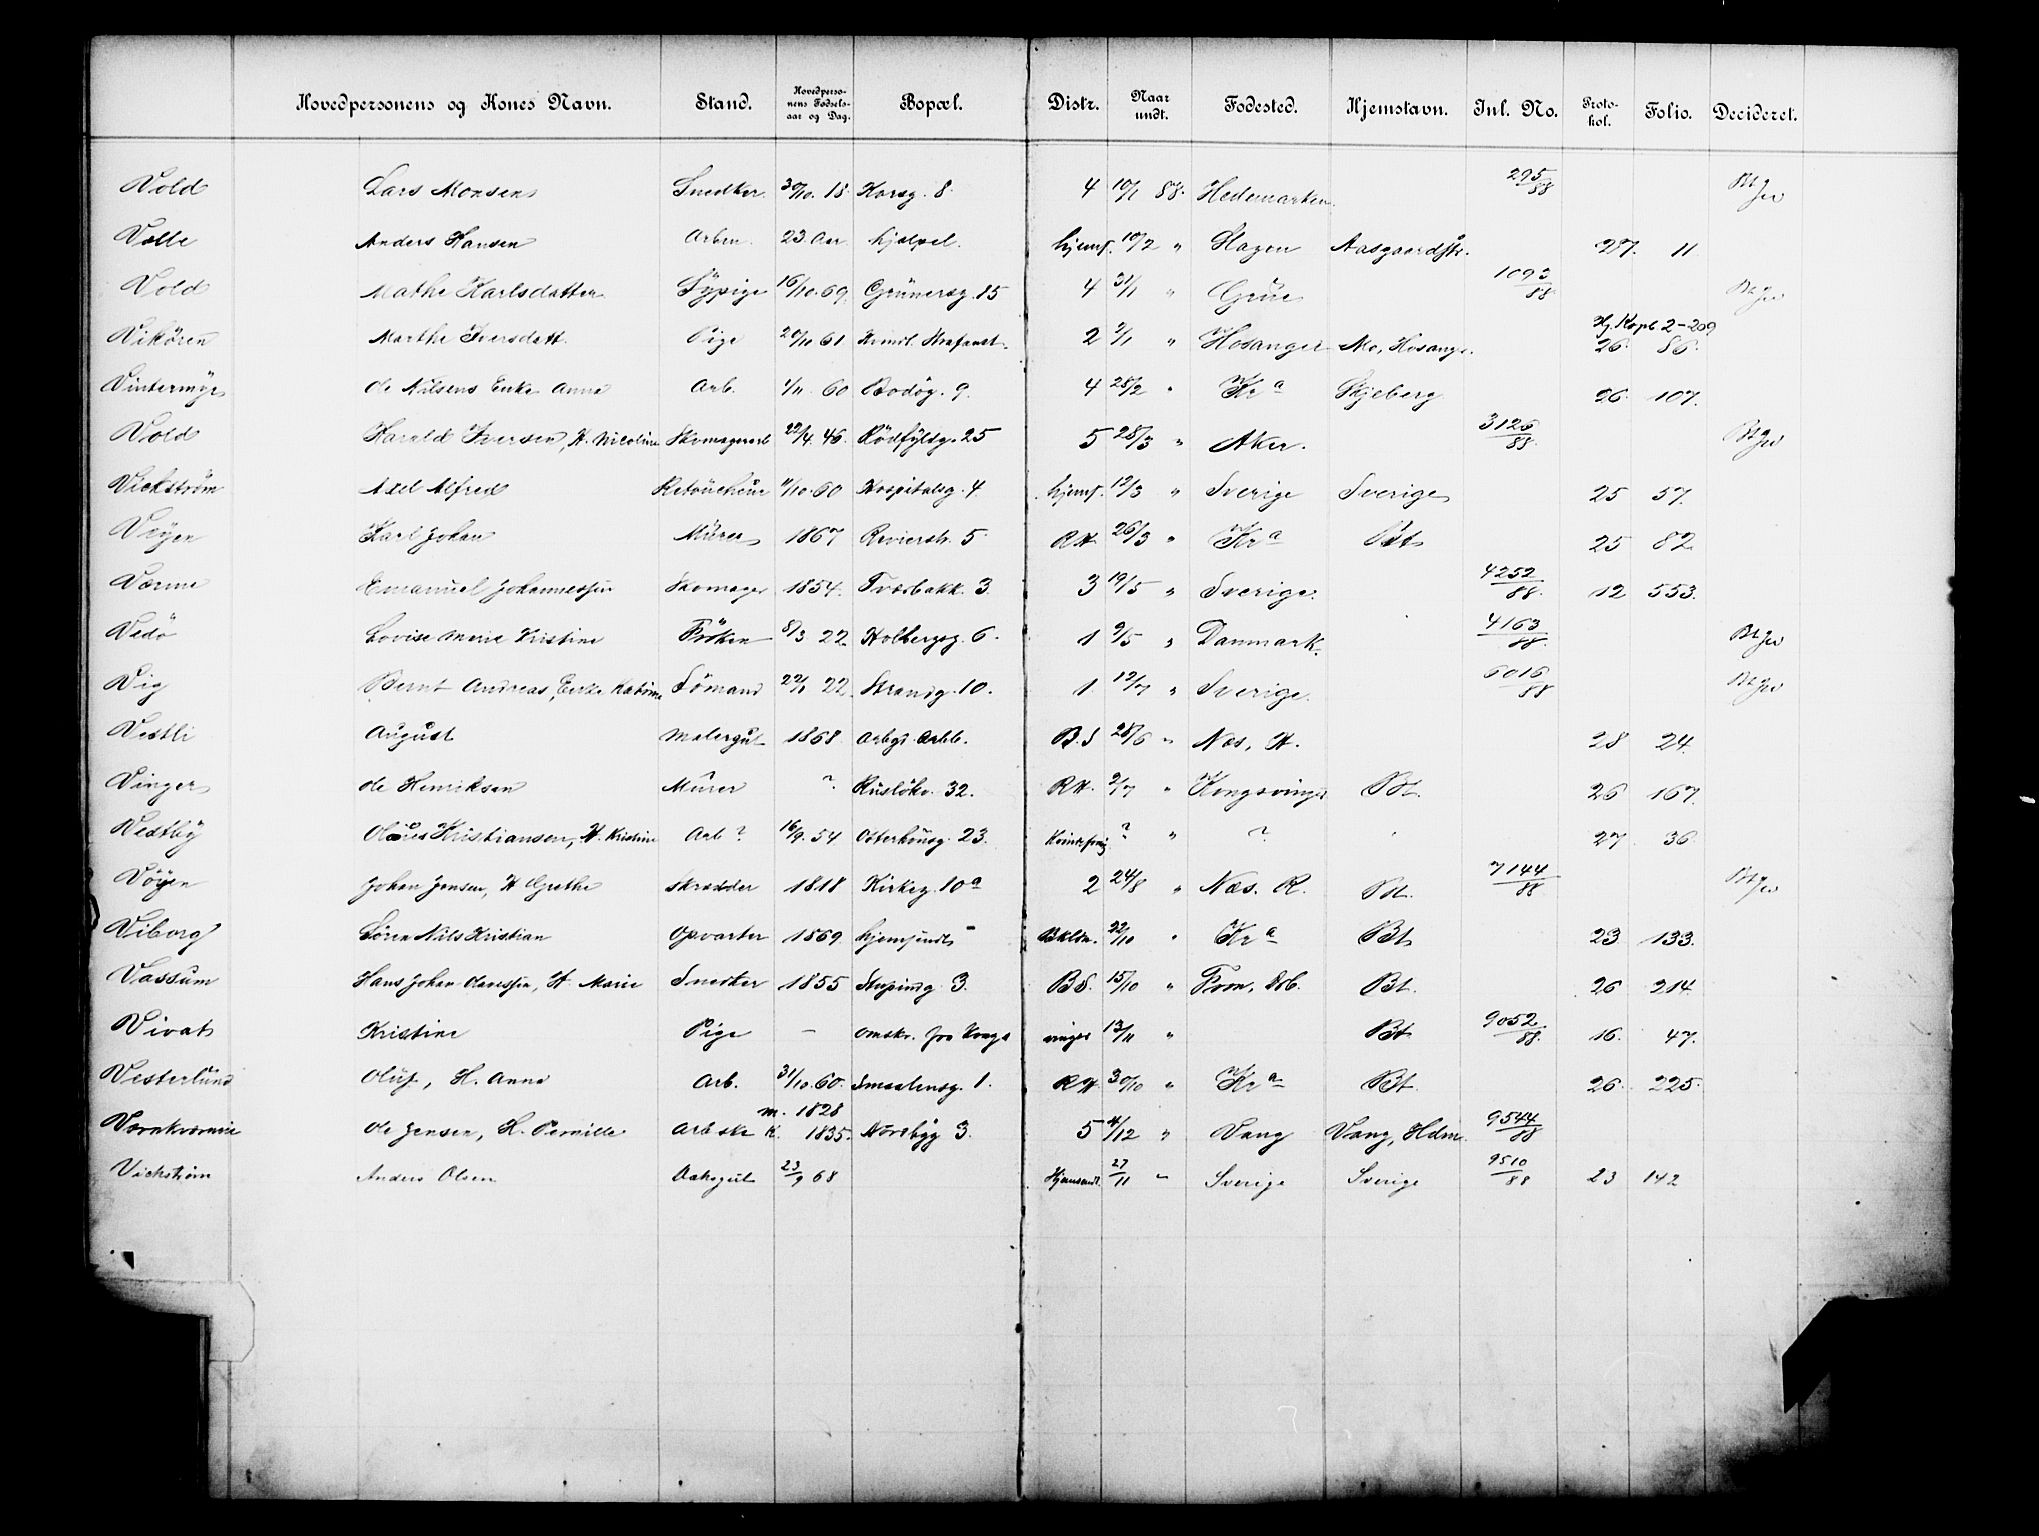 Hovedpersonens og Kones Navn. Stand. Hovedpersonens Fødselsaar og Dag. Bopæl. Distr. Naar undt. Fødested. Hjemstavn. Inl. No. Protokol. Folio. Decideret.
Vold Lars Monsen Snedker 30/10. 18 Korsg. 8. 4 10/1 88. Hedemarken 295/88
Valle Anders Hansen Arbm. 23 Aar hjælpel. hjems. 10/2 " Slagen Aasgaardstr. 27. 11
Vold Mathe Karlsdatter Sypige 16/10. 69 Grünersg. 15 4 31/1 " Grue 1093/88
Vikören Marthe Iversdatt. Pige 20/10 61 Kvindl. Strafanst. 2 2/1 " Hosanger Mo, Hosange. Hj. Kopb. 2-209 26. 86.
Vintermyr Ole Nilsens Enke Anna Arb. 1/11. 60 Bodög. 9. 4 28/2 " Kr a Skjeberg 26. 107.
Vold Harald Iversen, H. Nicoline Skomagerarb 22/4. 46. Rödfyldg. 25 5 28/3 " Aker. 3125/88
Vickström Axel Alfred Retoucheur 11/10. 60 Hospitalsg. 4 hjems. 12/3 " Sverige Sverige 25 57.
Vøyen Karl Johan Murer 1867 Revierstr. 5. RH. 26/3 " Kr a Bt 25 82
Værme Emanuel Johannessen Skomager 1854. Tværbakk. 3. 3 19/5 " Sverige. 4252/88. 12 553.
Vedö Lovise Marie Kristine Fröken 8/3 22. Holbergsg. 6. 1 9/5 " Danmark. 4163/88.
Vig Bernt Andreas, Enke Katrine Sömand 22/1 22 Strandg. 10. 1. 12/7 " Sverige. 6016/88
Vestli August Malergut 1868 Arbgs. Arbb. B.S 28/6 " Næs, H. 28 24.
Vinger Ole Henriksen Murer ? Rusløkv. 32. RH. 2/7 " Kongsvinger Bt. 26 167.
Vestby Olaus Kristiansen, H. Kristine Arb ? 16/9. 54 Osterhausg. 23. ? " ? 27 36
Vöyen Johan Jensen, H Grethe Skrædder 1818 Kirkeg. 10a 2 24/8 " Næs. R. Bt. 7144/88
Viborg Sören Nils Kristian Opvarter 1869 hjemsendt - 22/10 " Kr a Bt 23 133.
Vassum Hans Johan Olavessen, H. Marie Snedker 1855 Stupindg. 3. BS. 15/10 " Fron, Drb. Bt. 26 214.
Vivat Kristine Pige - omskr. fra Kongs vinger 13/11 " Bt 9052/88. 16. 47.
Vesterlund Oluf, H. Anna Arb. 31/10. 60. Smaalensg. 1. RH 30/10 " Kr a Bt. 26. 225.
Værnkværnie Ole Jensen, H. Pernille Arbske M. 1828 K. 1835. Nordbyg 3. 5 4/12 " Vang Vang, Hdm. 9544/88
Vickstrøm Anders Olsen Aaksgut 23/9 68 Hjemsendt. 27/11 " Sverige Sverige 9510/88 23 142